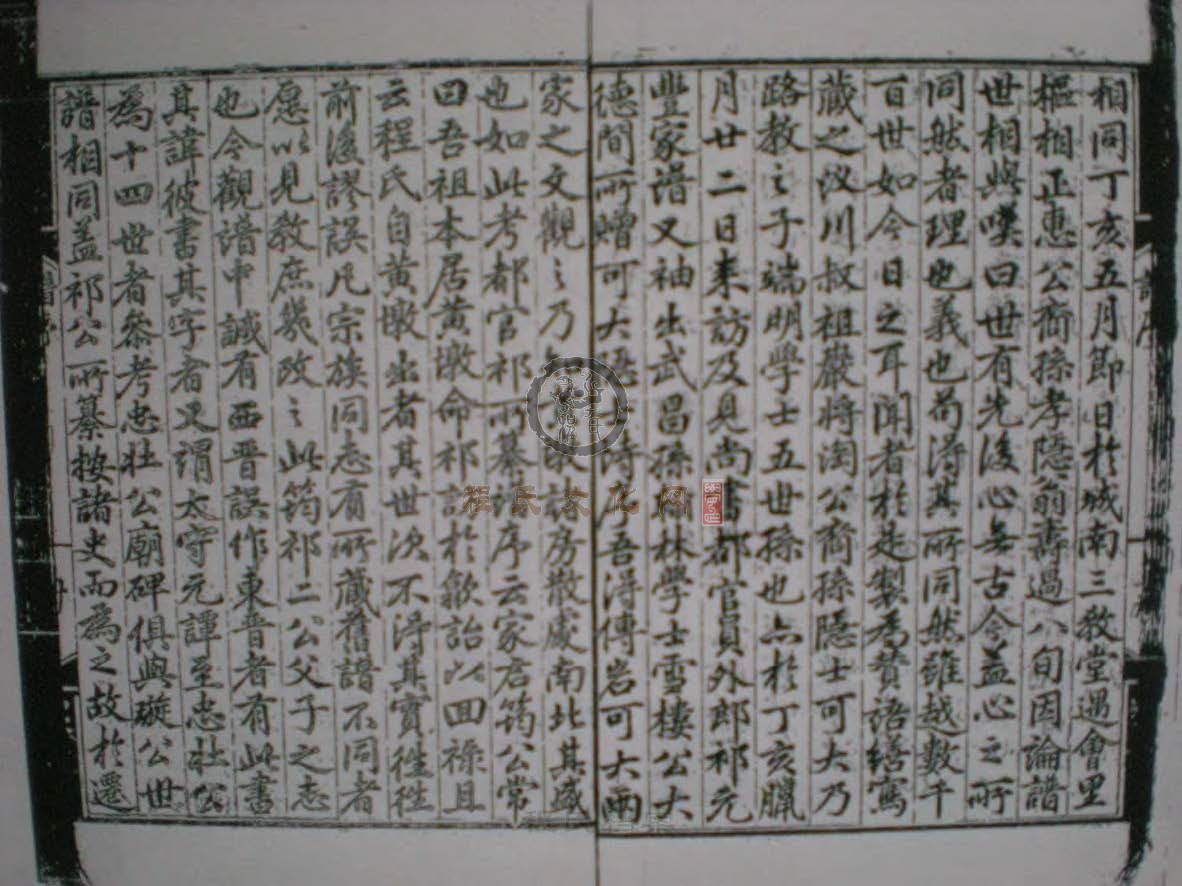 相同丁亥五月節日於城南三教堂遇會里
樞相正惠公裔孫孝隱翁壽過八旬因論譜
世相與嘆曰世有先後心無古今蓋心之所
同然者理也義也苟得其所同然雖越數千
百世如今日之耳聞者於是製為贊語繕寫
藏之汊川叔祖嚴將淘公裔孫隱士可大乃
路教之子端明學士五世孫也亦於丁亥臘
月廿二日來訪及見尚書都官員外郎祁元
豐家譜又袖出武昌孫翰林學士雪樓公大
德間所贈可大隱士詩序吾得傳岩可大兩
家之文觀之乃知歙諸房散處南北其盛
也如此考都官祁所纂譜序云家君筠公常
曰吾祖本居黃墩命祁訪於歙詒以回祿且
云程氏自黃墩出者其世次不得其實往往
前後謬誤凡宗族同志有所藏舊譜不同者
愿以見教庶幾改之此筠祁二公父子之志
也今觀譜中誠有西晋誤作東晋者有此書
其諱彼書其字者又謂太守元譚至忠壯公
為十四世者參考忠壯公廟碑俱與礙公世
譜相同蓋祁公所纂按諸史而為之故於遷
譜序
程氏文化网